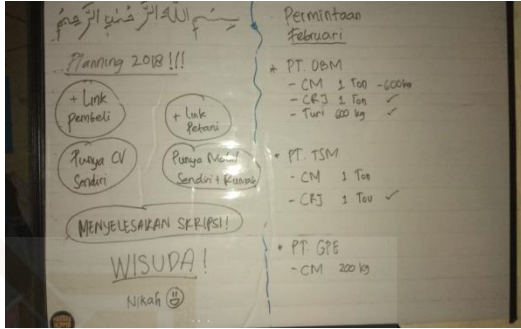 بسم الله الرحمن الرحيم
Planning 2018 !!!
+ Link
pembeli
+ Link
Petani
Punya CV
Sendiri
Punya Mobil
Sendiri + Rumah
MENYELESAIKAN SKRIPSI!
WISUDA!
Nikah
Permintaan
Februari
* PT. OBM
- CM 1 Ton -600kg
- CRJ 1 Ton ✓
- Turi 600 kg ✓
• PT. TSM
- CM 1 Ton
- CRJ 1 Ton ✓
• PT. GPE
- CM 200 kg